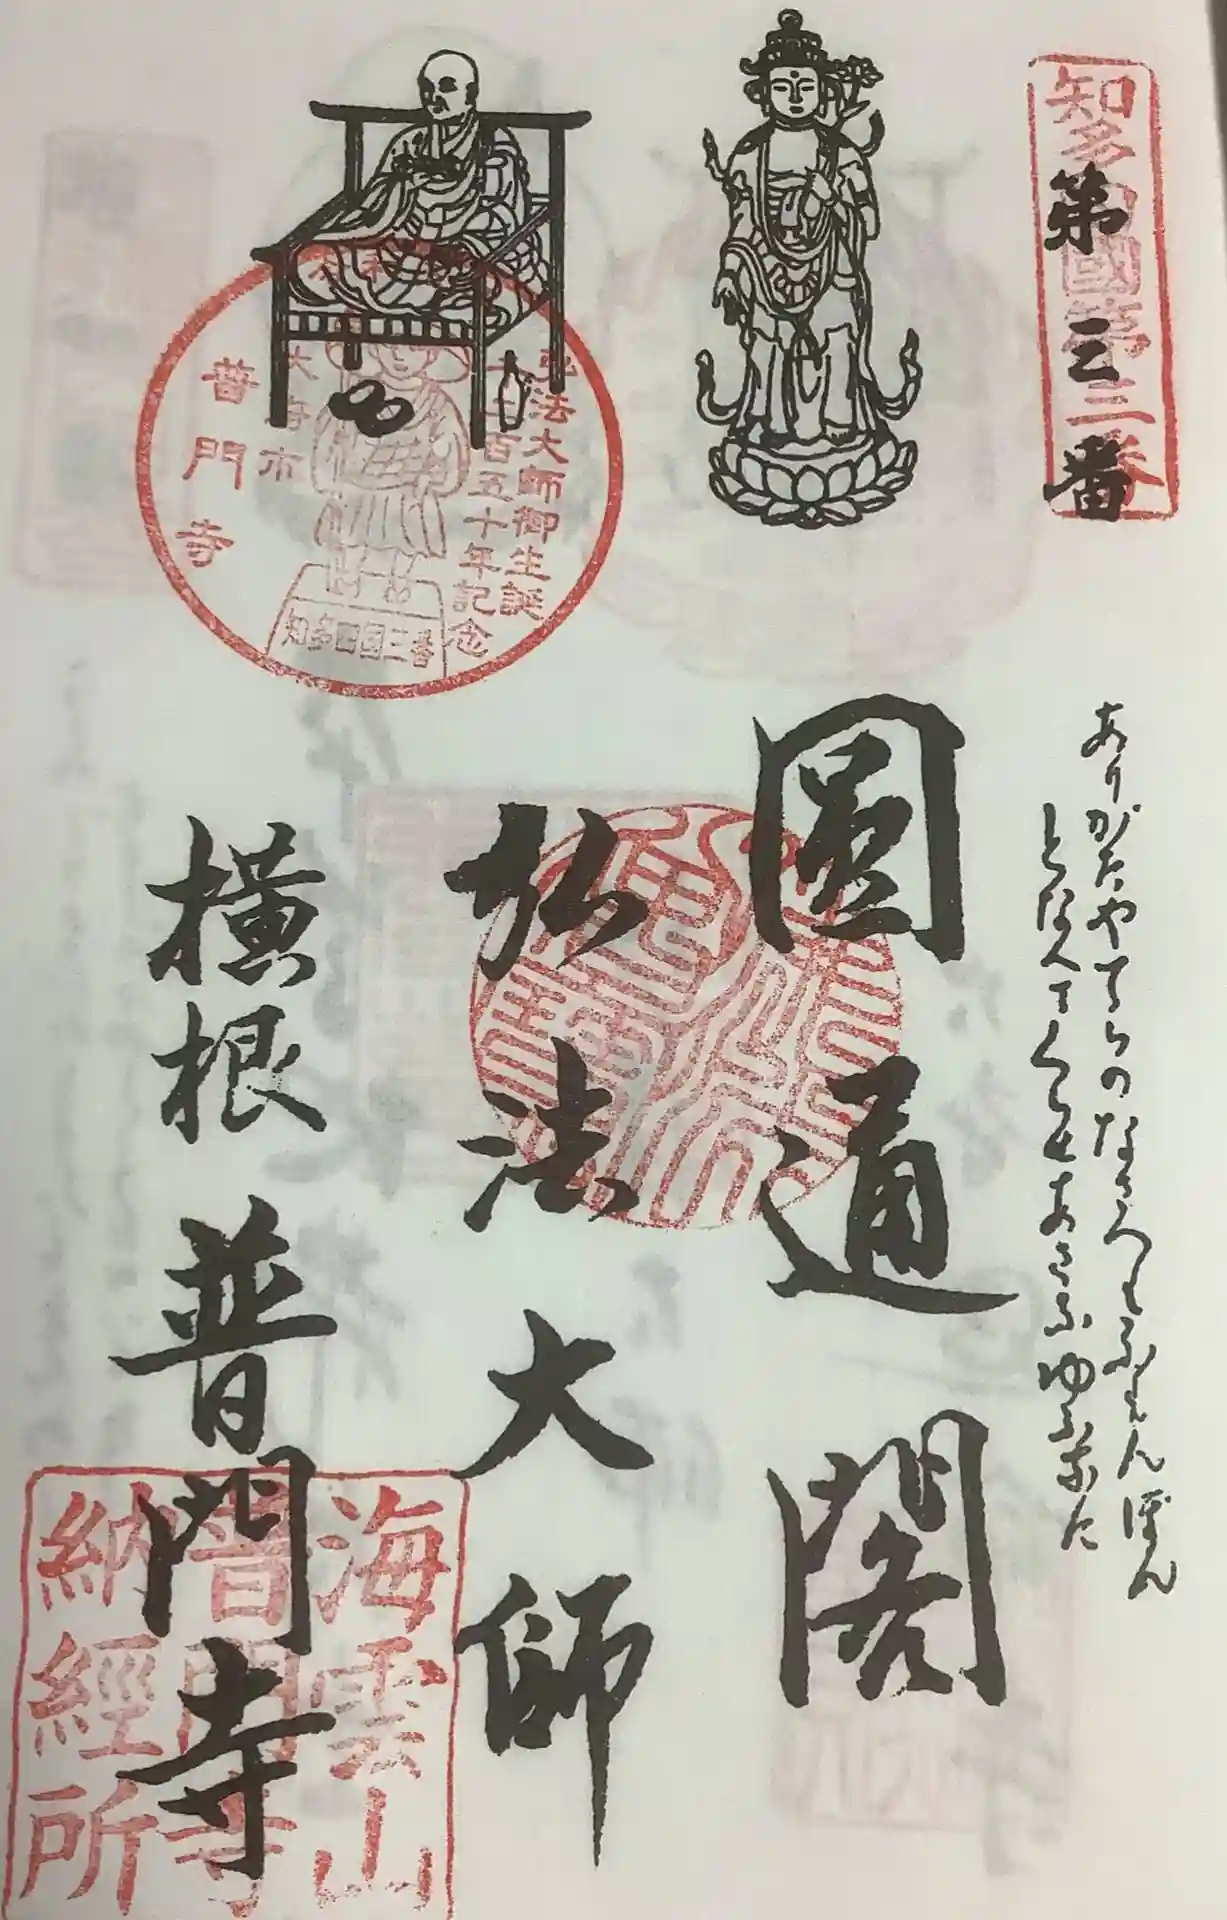 知多四國第三番
第三番
ありがたやてらのなさへもふもんぼん
となへてくらせあさふゆふなに
圓通閣
弘法大師
弘法大師御生誕
千二百五十年記念
知多四国三番
大府市
普門寺
横根 普門寺
海雲山
普門寺
納經所